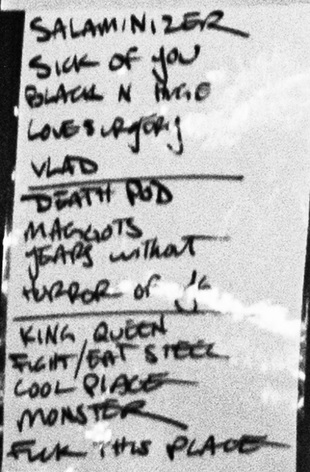 SALAMINIZER
SICK OF YOU
BLACK N HUGE
LOVE SURGERY
VLAD
DEATH POD
MAGGOTS
YEARS without
HORROR OF
KING QUEEN
FIGHT/EAT STEEL
COOL PLACE
MONSTER
FUCK THIS PLACE